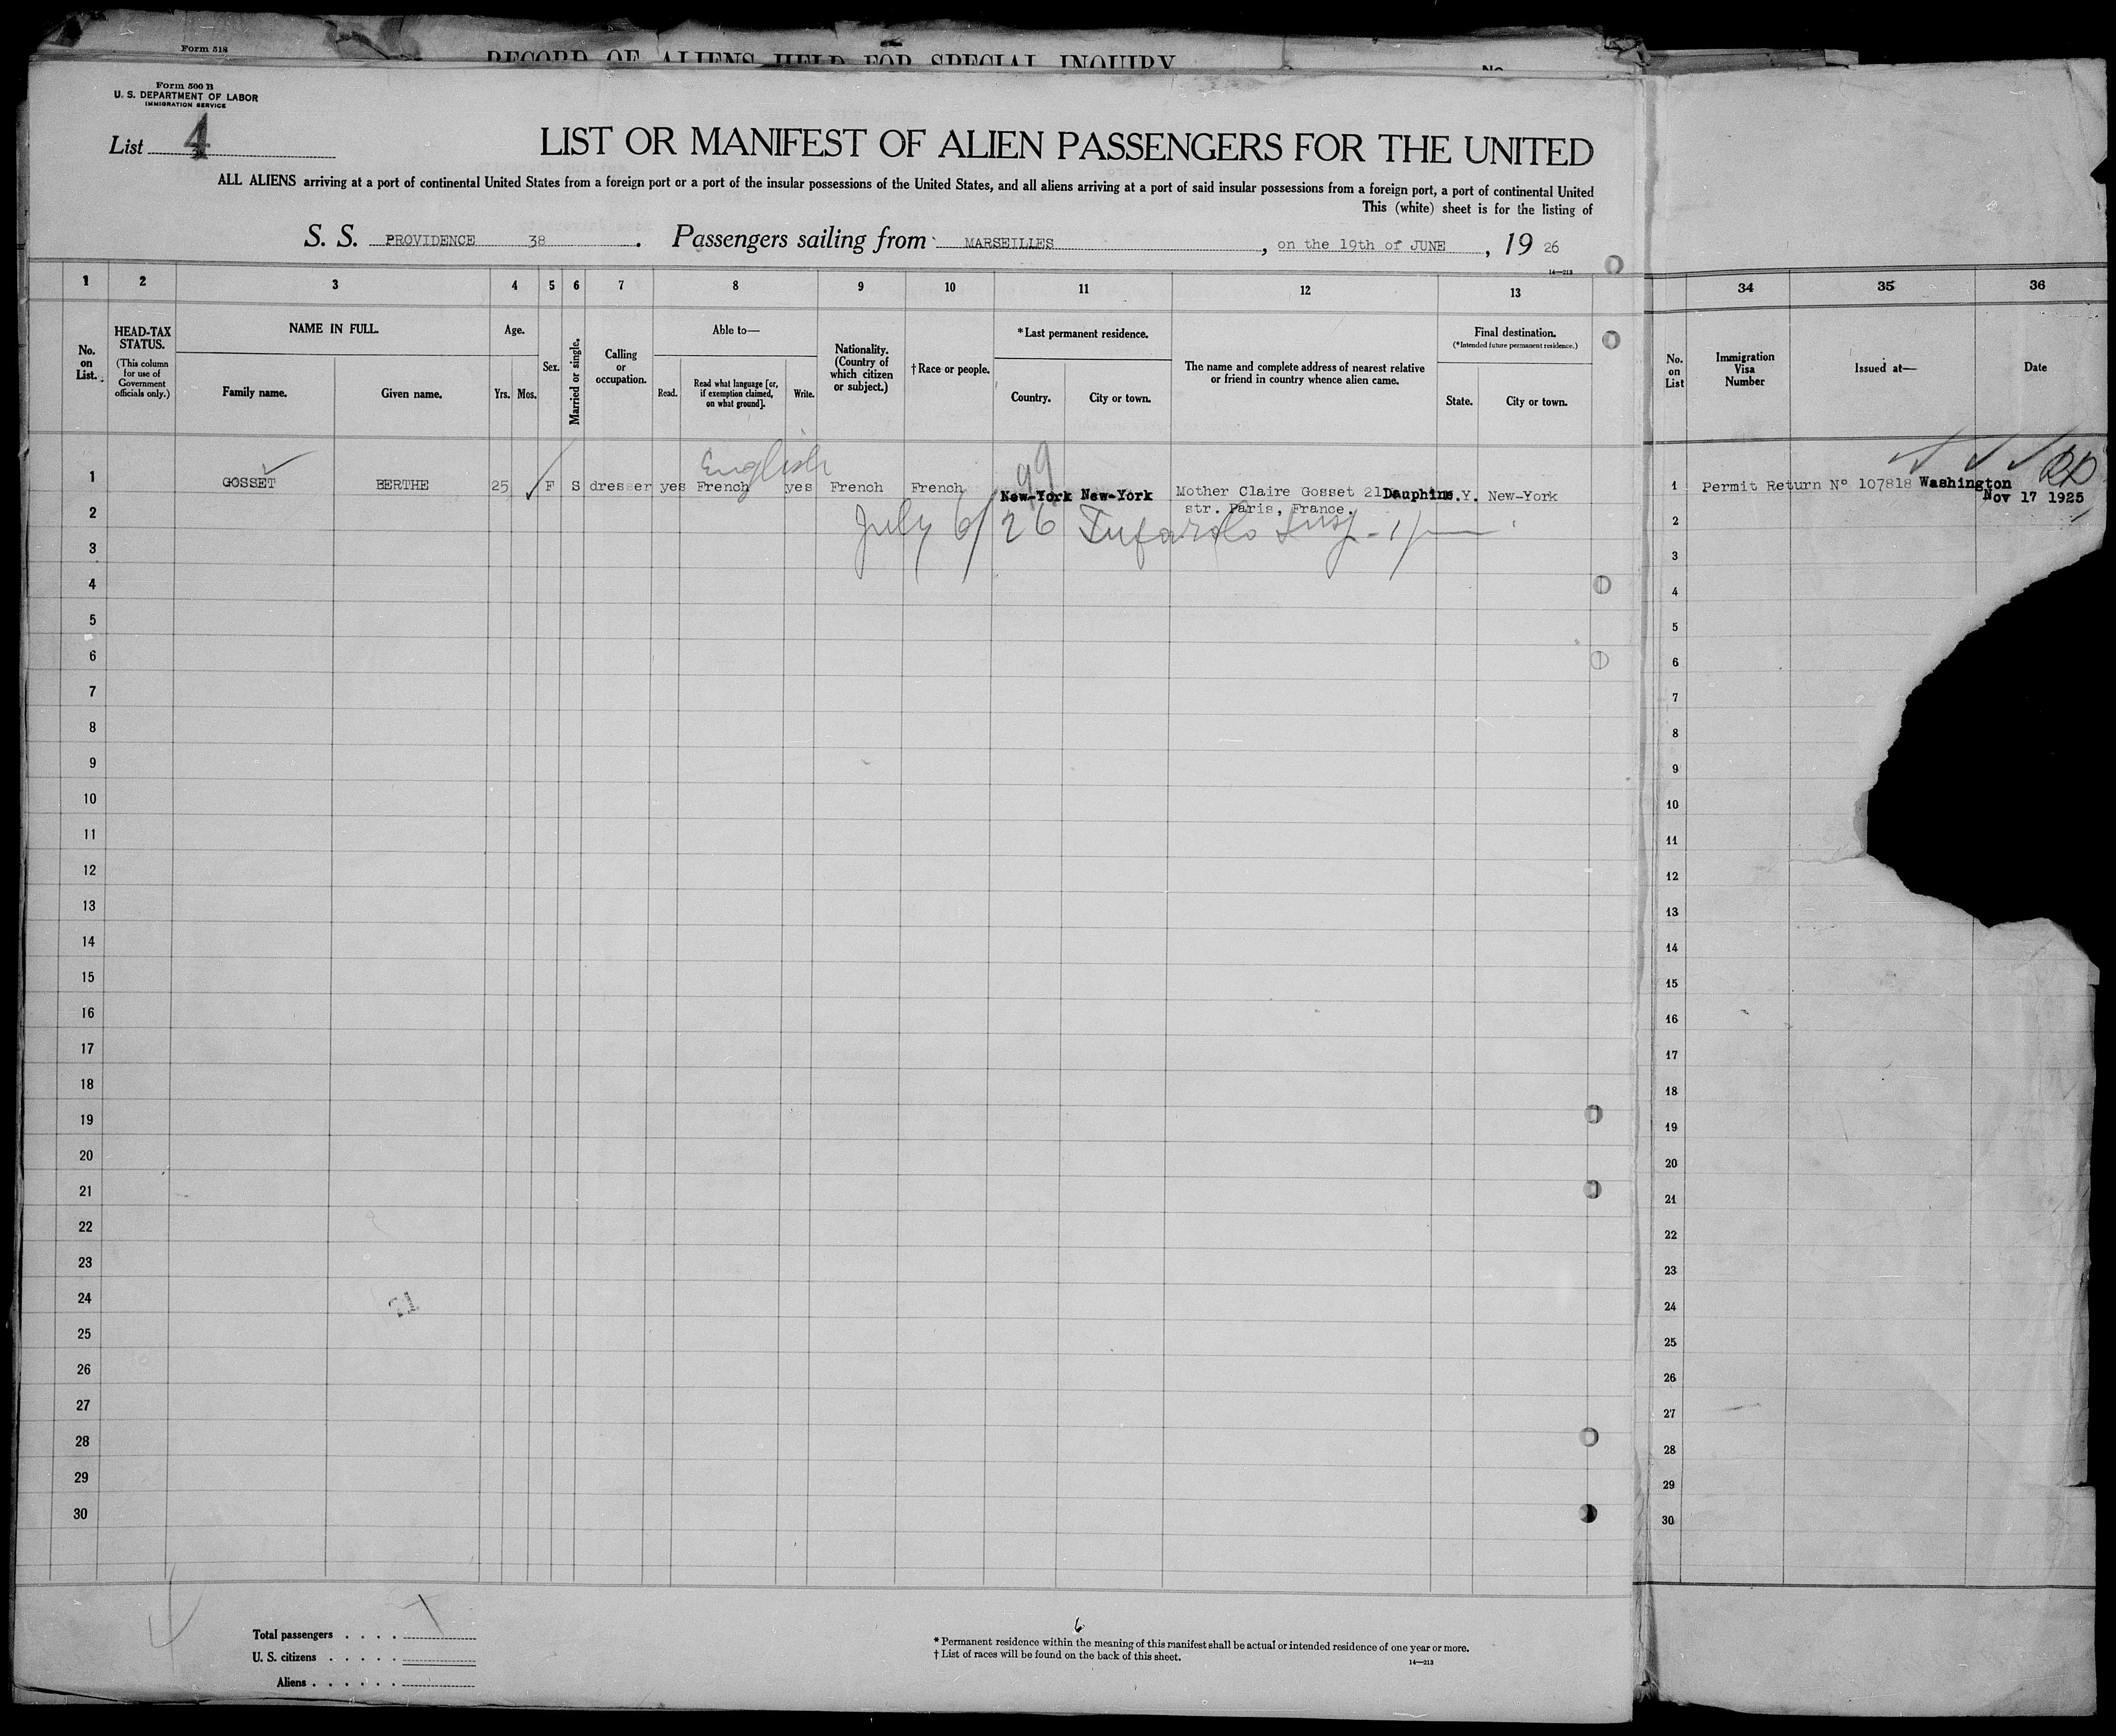 Form 518
RECORD OF ALIENS HELD FOR SPECIAL INQUIRY
No.
Form 500 B
U. S. DEPARTMENT OF LABOR
IMMIGRATION SERVICE
List 4
LIST OR MANIFEST OF ALIEN PASSENGERS FOR THE UNITED
ALL ALIENS arriving at a port of continental United States from a foreign port or a port of the insular possessions of the United States, and all aliens arriving at a port of said insular possessions from a foreign port, a port of continental United
This (white) sheet is for the listing of
S. S. PROVIDENCE 38 . Passengers sailing from MARSEILLES , on the 19th of JUNE , 19 26
14—213
1 2 3 4 5 6 7 8 9 10 11 12 13 34 35 36
No. on List.
HEAD-TAX STATUS.
(This column for use of Government officials only.)
NAME IN FULL.
Family name. Given name.
Age.
Yrs. Mos.
Sex.
Married or single.
Calling or occupation.
Able to—
Read. Read what language [or, if exemption claimed, on what ground]. Write.
Nationality. (Country of which citizen or subject.)
†Race or people.
*Last permanent residence.
Country. City or town.
The name and complete address of nearest relative or friend in country whence alien came.
Final destination.
(*Intended future permanent residence.)
State. City or town.
No. on List
Immigration Visa Number
Issued at—
Date
English 99
1 GOSSET BERTHE 25 F S dresser yes French yes French French New-York New-York Mother Claire Gosset 21 Dauphine N.Y. New-York 1 Permit Return Nº 107818 Washington Nov 17 1925
str. Paris, France.
2 July 6/26 Insp. 2
3 3
4 4
5 5
6 6
7 7
8 8
9 9
10 10
11 11
12 12
13 13
14 14
15 15
16 16
17 17
18 18
19 19
20 20
21 21
22 22
23 23
24 24
25 25
26 26
27 27
28 28
29 29
30 30
Total passengers . . . .
U. S. citizens . . . . .
Aliens . . . . . .
6
* Permanent residence within the meaning of this manifest shall be actual or intended residence of one year or more.
† List of races will be found on the back of this sheet.
14—213